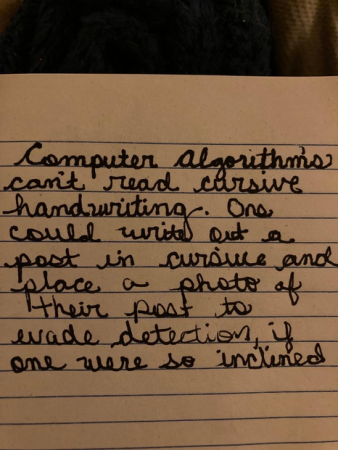 Computer algorithms
can't read cursive
handwriting. One
could write out a
post in cursive and
place a photo of
their post to
evade detection, if
one were so inclined